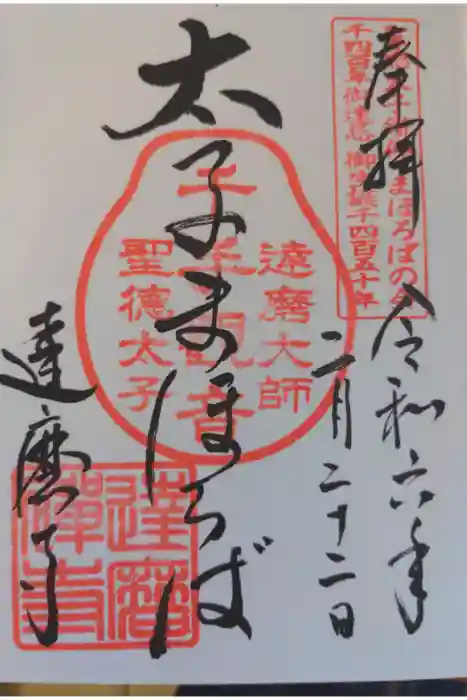 奉拝
千四百年御遠忌 御生誕千四百五十年
令和六年
二月二十二日
達磨大師
千手観音
聖徳太子
太子まほろば
達磨寺
達磨禅寺